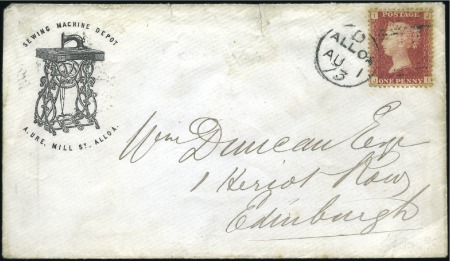 SEWING MACHINE DEPOT
A. URE, MILL ST. ALLOA.
ALLOA
AU 1
73
POSTAGE
ONE PENNY
Wm Duncan Esqr
1 Heriot Row
Edinburgh